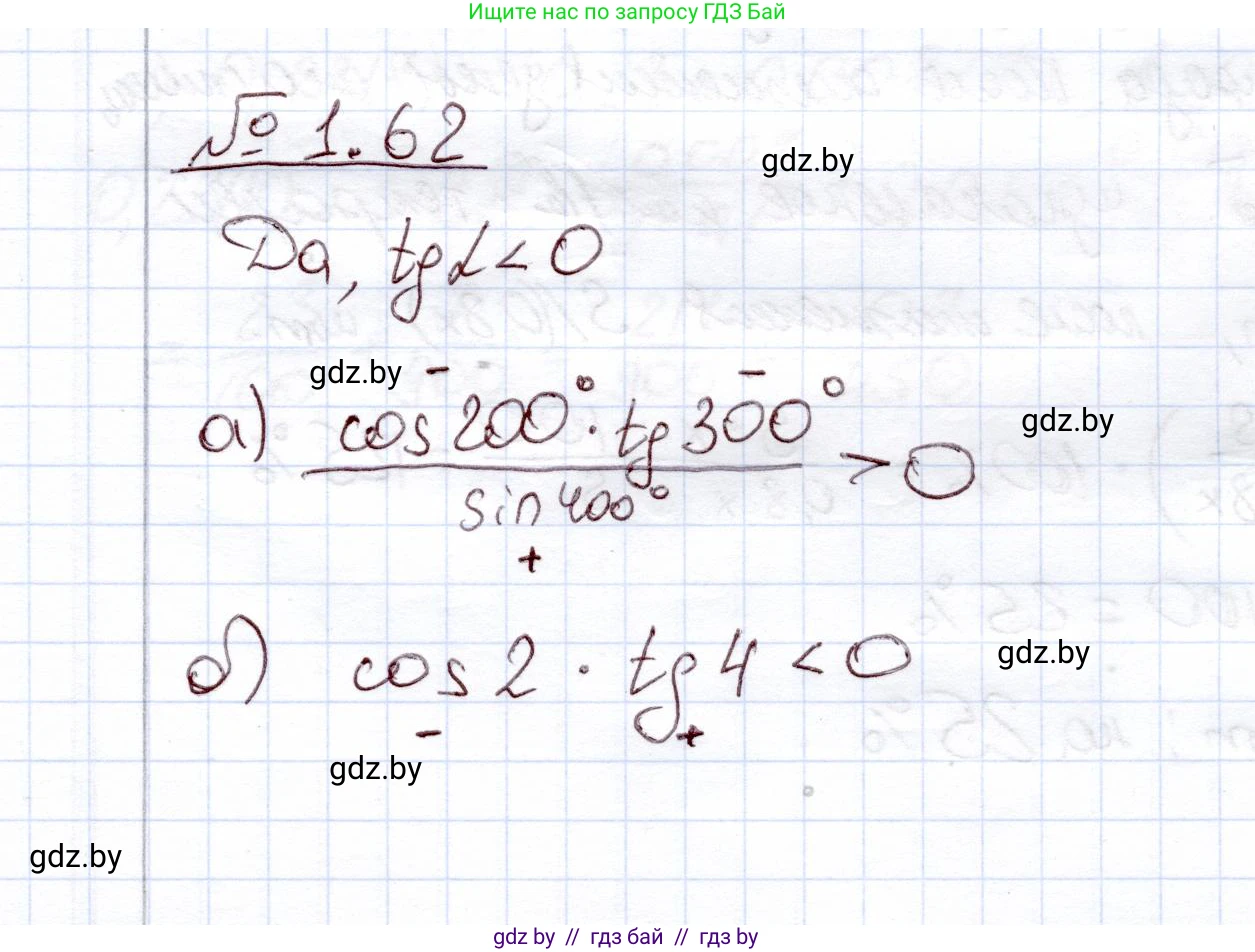 Ищите нас по запросу ГДЗ Бай
№ 1.62
gdz.by
Да, tg α < 0
gdz.by
- -
а) cos 200° · tg 300° > 0
gdz.by
sin 400°
+
б) cos 2 · tg 4 < 0
gdz.by
- +
gdz.by
gdz.by
gdz by // гдз бай // гдз by